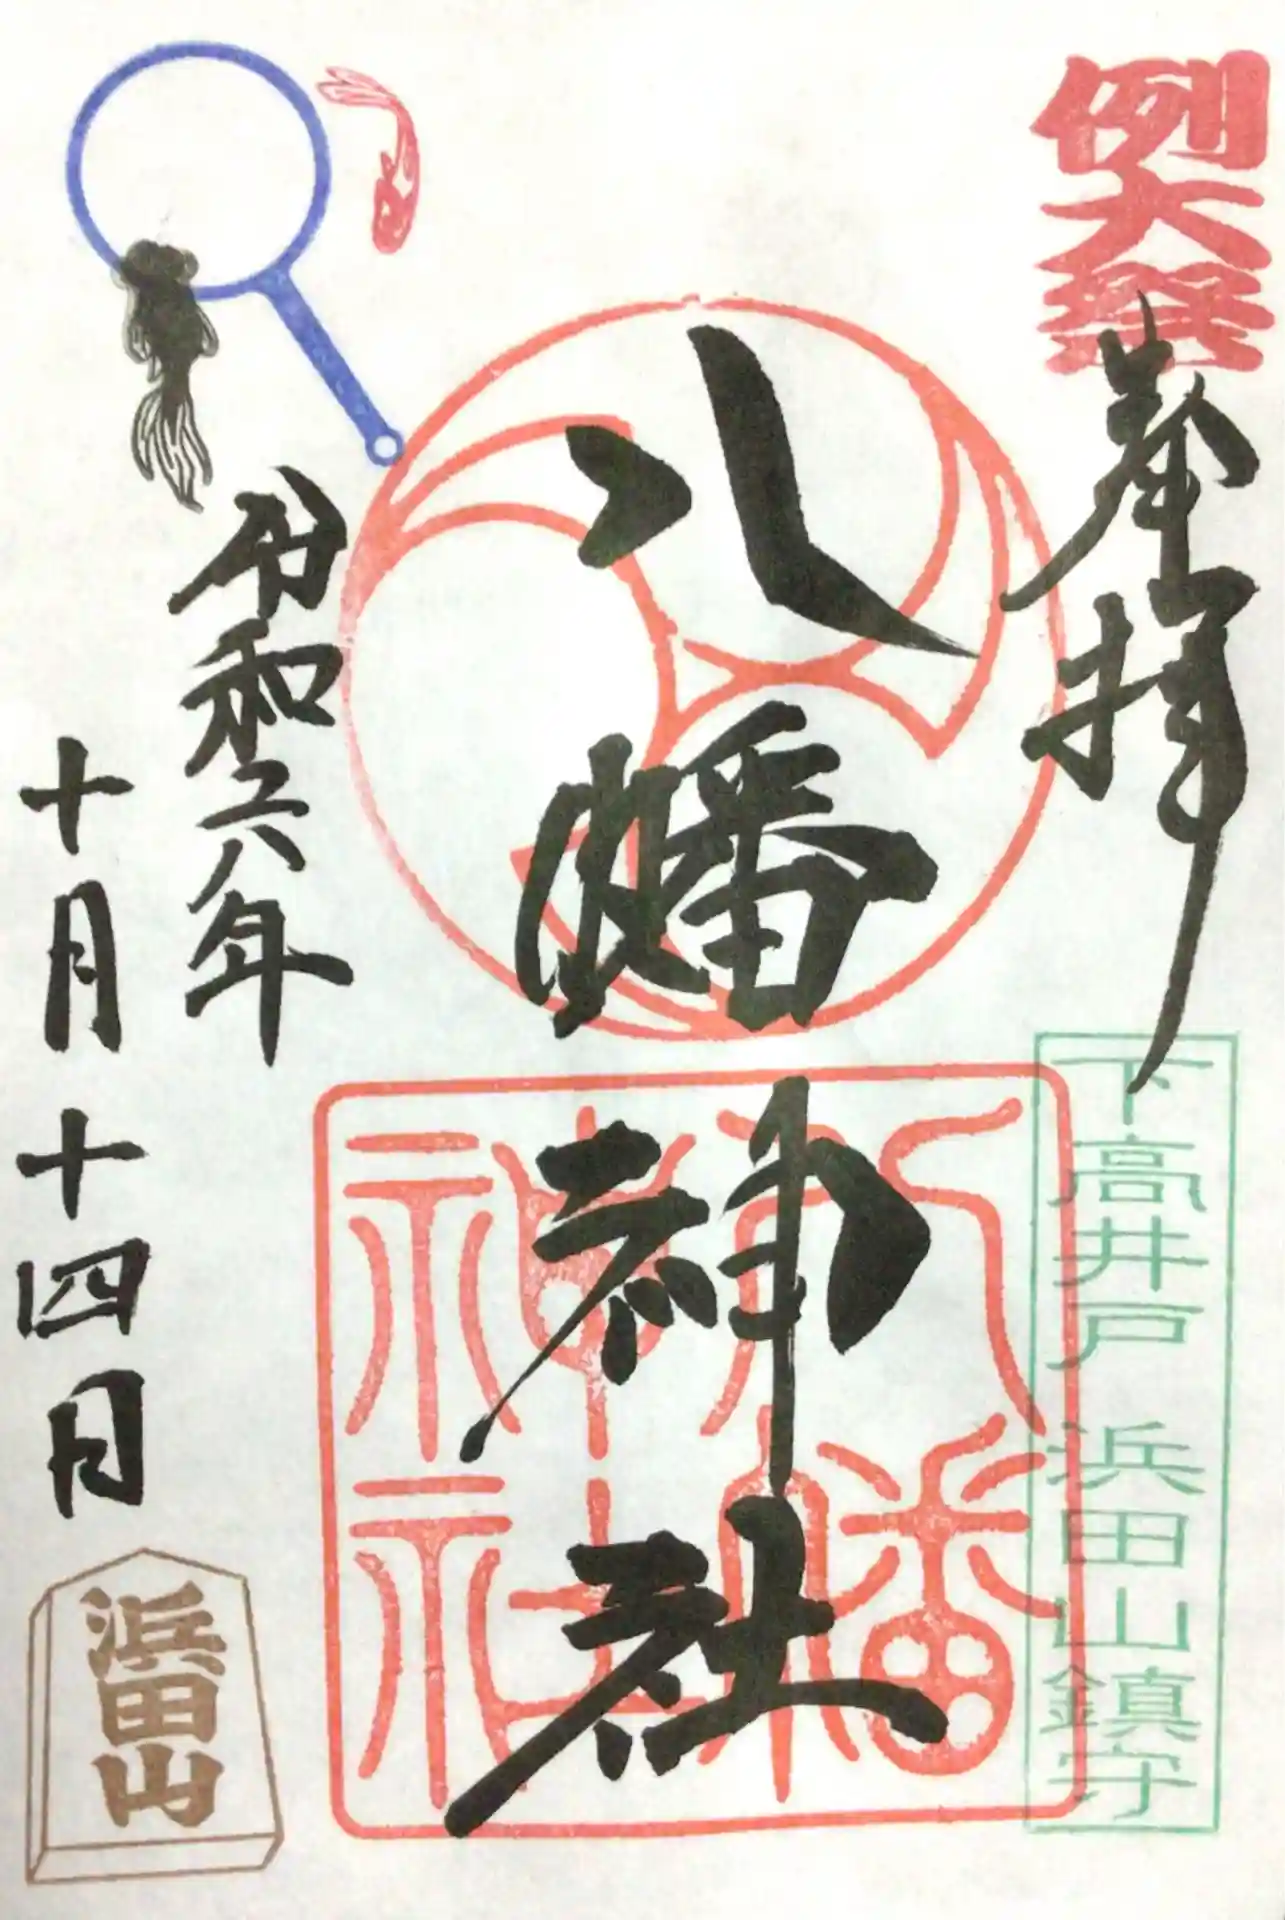 例大祭
奉拝
下高井戸 浜田山鎮守
八幡神社
八幡
神社
令和六年
十月十四日
浜田山